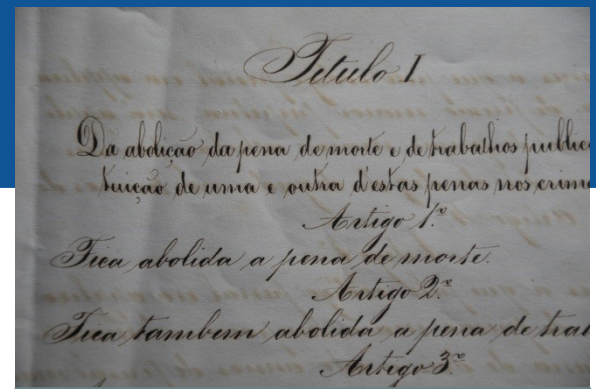 Titulo I
Da abolição da pena de morte e de trabalhos public
tuição de uma e outra d'estas penas nos crim
Artigo 1.º
Fica abolida a pena de morte.
Artigo 2.º
Fica tambem abolida a pena de tra
Artigo 3.º